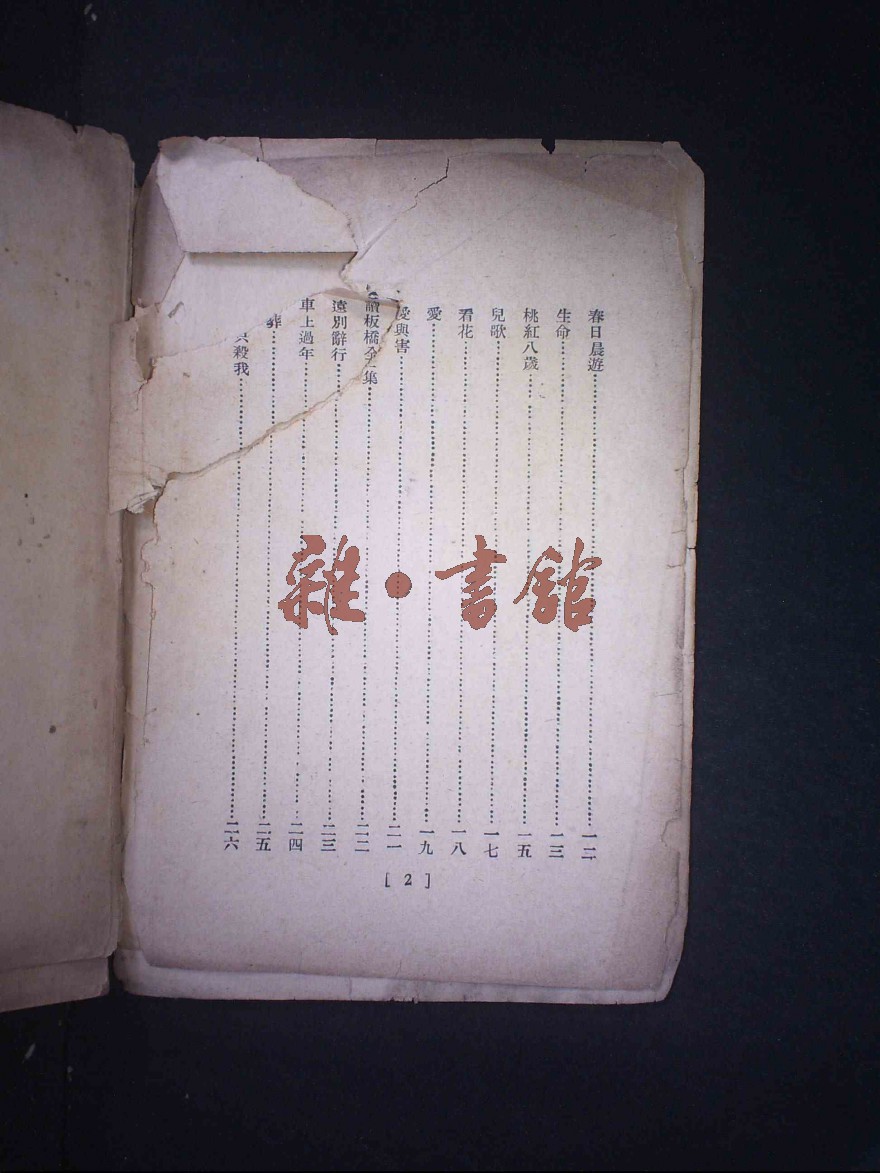 春日晨遊……一二
生命……一三
桃紅八歲……一五
兒歌……一七
看花……一八
愛……一九
愛與害……二一
讀板橋全集……二二
遠別辭行……二三
車上過年……二四
葬……二五
殺我……二六
[ 2 ]
雜·書館